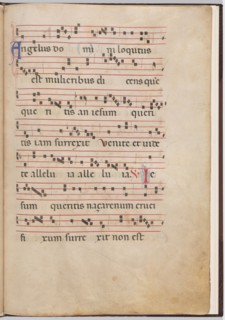 Angelus do mi ni loqutus
est mulieribus di cens que
que ri tis an iesum queri
tis iam surrexit Venite et vite
te allelu ia alle lu ia V Ie
sum queritis naçarenum cruci
fi xum surre xit non est